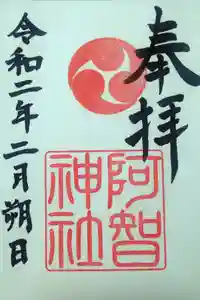 奉拝
阿智
神社
令和二年二月朔日